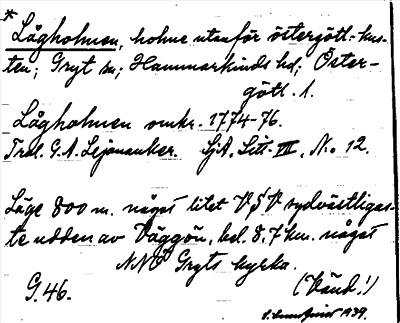 * Lågholmen, holme utanför östergötl.-kus-
ten; Gryt sn; Hammarkinds hd; Öster-
götl. 1.
Lågholmen omkr. 1774-76.
Trol. G. A. Lejonanker. SjA, Litt. VII, No 12.
Läge 800 m. något litet V § V sydvästligas-
te udden av Väggön, bel. 8,7 km. något
NNO Gryts kyrka.
G. 46.
(Vänd!)
1939.